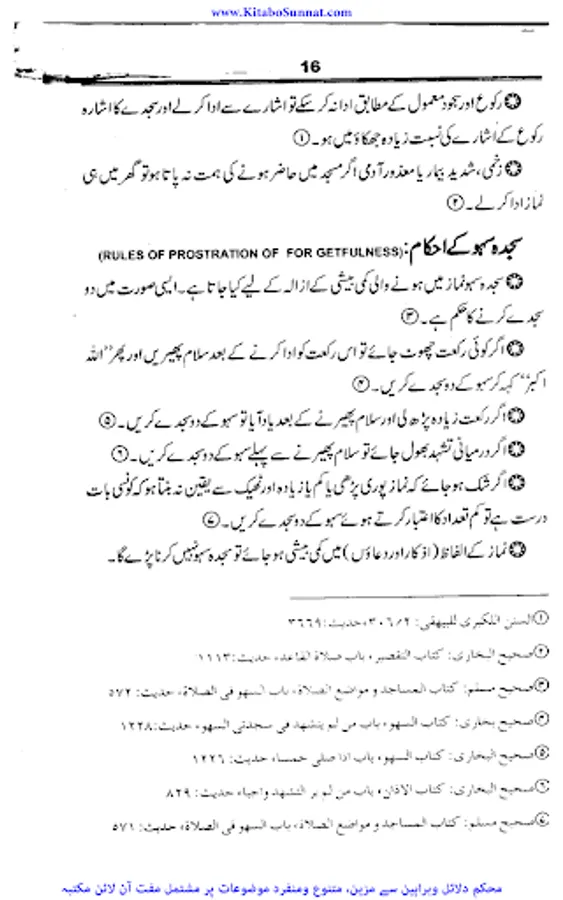 www.KitaboSunnat.com
16
✪ رکوع اور سجود معمول کے مطابق ادا نہ کر سکے تو اشارے سے ادا کرلے اور سجدے کا اشارہ
رکوع کے اشارے کی نسبت زیادہ جھکاؤ میں ہو۔①
✪ زخمی، شدید بیمار یا معذور آدمی اگر مسجد میں حاضر ہونے کی ہمت نہ پاتا ہو تو گھر میں ہی
نماز ادا کرلے۔②
سجدہ سہو کے احکام: (RULES OF PROSTRATION OF FOR GETFULNESS)
✪ سجدہ سہو نماز میں ہونے والی کمی بیشی کے ازالہ کے لیے کیا جاتا ہے۔ ایسی صورت میں دو
سجدے کرنے کا حکم ہے۔③
✪ اگر کوئی رکعت چھوٹ جائے تو اس رکعت کو ادا کرنے کے بعد سلام پھیریں اور پھر ’’اللہ
اکبر‘‘ کہہ کر سہو کے دو سجدے کریں۔④
✪ اگر رکعت زیادہ پڑھ لی اور سلام پھیرنے کے بعد یاد آیا تو سہو کے دو سجدے کریں۔⑤
✪ اگر درمیانی تشہد بھول جائے تو سلام پھیرنے سے پہلے سہو کے دو سجدے کریں۔⑥
✪ اگر شک ہو جائے کہ نماز پوری پڑھی یا کم یا زیادہ اور ٹھیک سے یقین نہ بنتا ہو کہ کونسی بات
درست ہے تو کم تعداد کا اعتبار کرتے ہوئے سہو کے دو سجدے کریں۔⑦
✪ نماز کے الفاظ (اذکار اور دعاؤں) میں کمی بیشی ہو جائے تو سجدہ سہو نہیں کرنا پڑے گا۔
①السنن الكبرى للبيهقى: ۳۰۶/۲، حدیث: ۳۶۶۹
②صحيح البخارى: كتاب التقصير، باب صلاة القاعد، حدیث: ۱۱۱۳
③صحيح مسلم: كتاب المساجد و مواضع الصلاة، باب السهو فى الصلاة، حدیث: ۵۷۲
④صحيح بخارى: كتاب السهو، باب من لم يتشهد فى سجدتى السهو، حدیث: ۱۲۲۸
⑤صحيح البخارى: كتاب السهو، باب اذا صلى خمسا، حدیث: ۱۲۲۶
⑥صحيح البخارى: كتاب الاذان، باب من لم ير التشهد واجباء حدیث: ۸۲۹
⑦صحيح مسلم: كتاب المساجد و مواضع الصلاة، باب السهو فى الصلاة، حدیث: ۵۷۱
محکم دلائل وبراہین سے مزین، متنوع ومنفرد موضوعات پر مشتمل مفت آن لائن مکتبہ